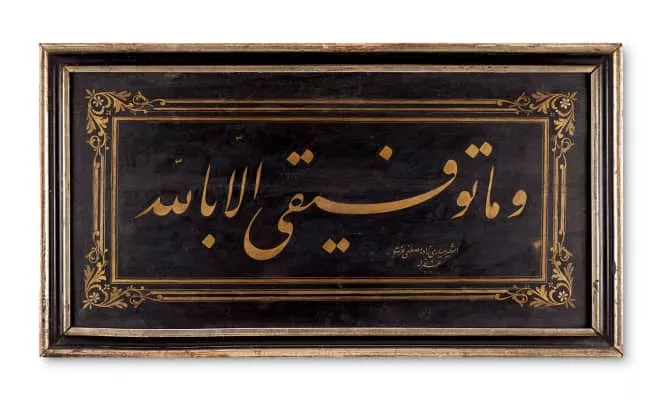 وما توفيقى الّا بالله